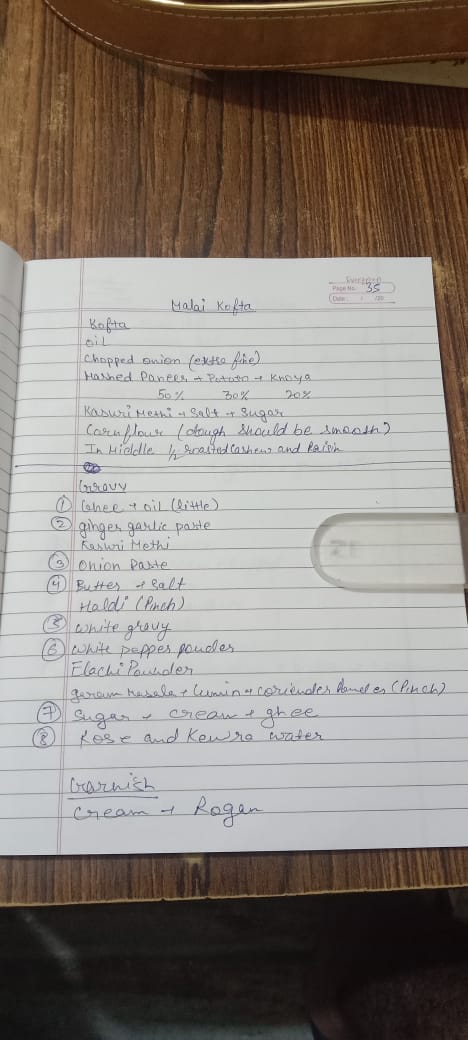 Evergreen
Page No. 35
Date : / /20
Malai Kofta
Kofta
oil
Chopped onion (extra fine)
Mashed Paneer + Potato + Khoya
50% 30% 20%
Kasuri Methi + Salt + Sugar
Cornflour (dough should be smooth)
In Middle 1/2 roasted Cashew and Raisin
Gravy
① Ghee + oil (little)
② ginger garlic paste
Kasuri Methi
③ Onion Paste
④ Butter + Salt
Haldi (Pinch)
⑤ white gravy
⑥ White pepper pouder
Elachi Pounder
garam Masala + Cumin + coriender Pouder (Pinch)
⑦ Sugar + cream + ghee
⑧ Rose and Kewra water
Garnish
Cream + Rogan